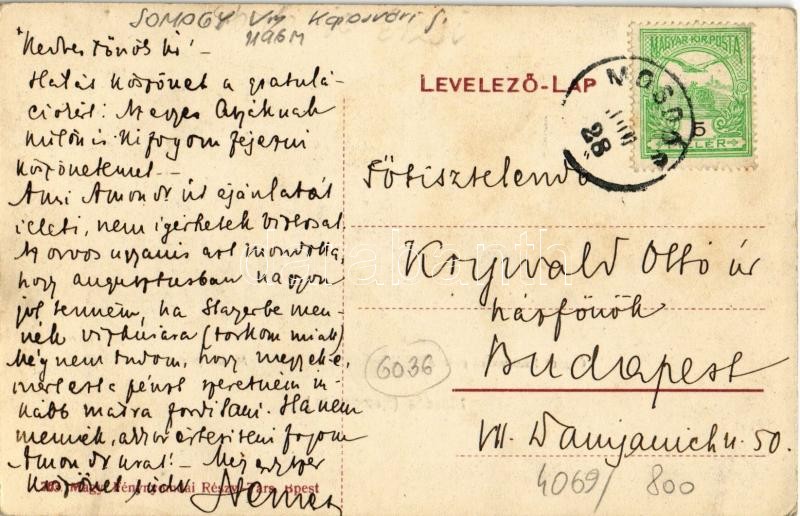 SOMOGY Vm Kaposvári J.
"Kedves Főnök úr! –
Hálás köszönet a gratulá-
cióért!
különis ki fogom fejezni
köszönetemet –
Ami Amon dr úr ajánlatát
illeti, nem igérhetek biztosat.
Az orvos ugyanis azt mondotta,
hogy augusztusban nagyon
jól tenném, ha
nék vizkúrára (torkom miatt)
Még nem tudom, hogy megyek-e,
mert ezt a pénzt szeretném in-
kább másra fordítani. Ha nem
mennék, akkor értesíteni fogom
Amon dr urat! – Még egyszer
köszönet s üdv Nemes
Magy. Fénynyomdai Részv. Társ. Bpest
LEVELEZŐ-LAP
MAGYAR KIR. POSTA
5
FILLÉR
MOSDÓS
28
Főtisztelendő
Krywald Ottó úr
házfőnök
Budapest
VII. Damjanich u. 50.
6036
4069/ 800